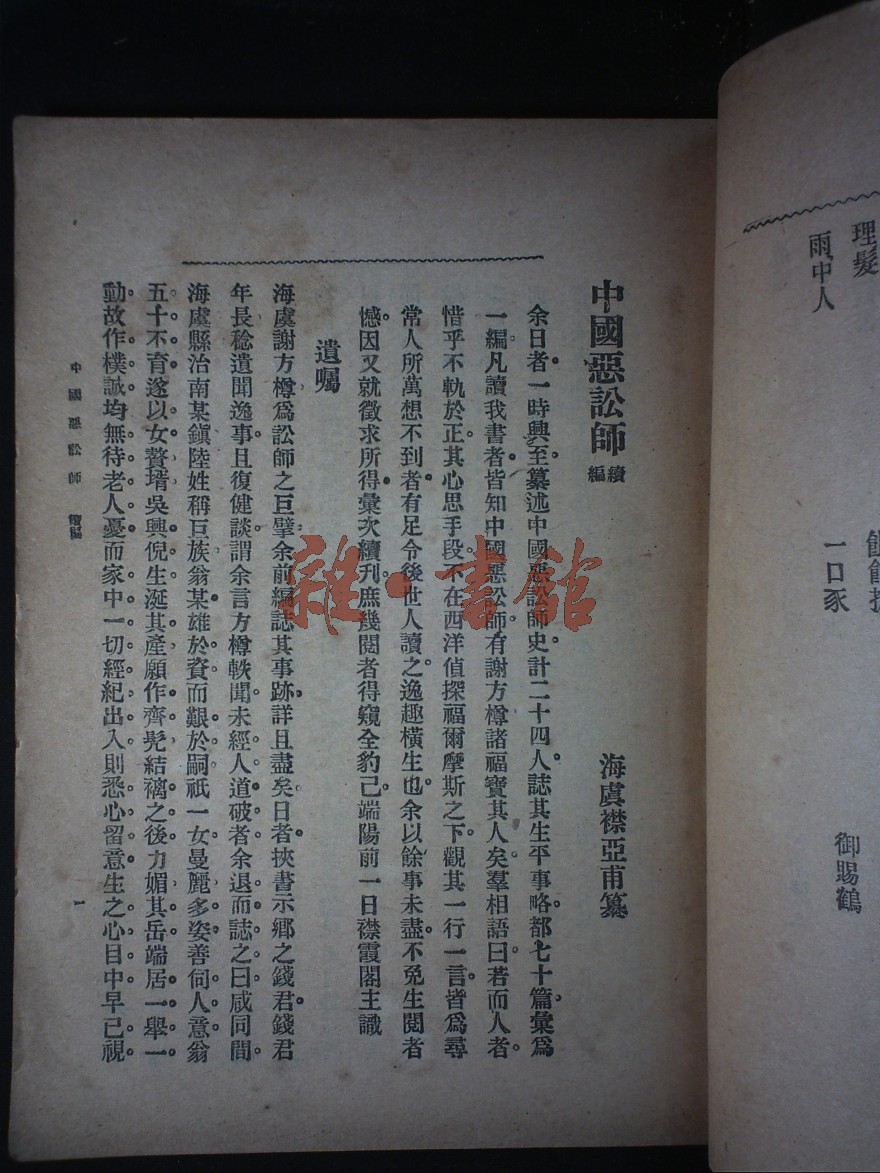 理髮
雨中人
一口豕
御賜鶴
中國惡訟師續編
海虞襟亞甫纂
余日者一時興至纂述中國惡訟師史計二十四人誌其生平事略都七十篇彙爲
一編凡讀我書者皆知中國惡訟師有謝方樽諸福寶其人矣羣相語曰若而人者
惜乎不軌於正其心思手段不在西洋偵探福爾摩斯之下觀其一行一言皆爲尋
常人所萬想不到者有足令後世人讀之逸趣橫生也余以餘事未盡不免生閱者
憾因又就徵求所得彙次續刊庶幾閱者得窺全豹己端陽前一日襟霞閣主識
遺囑
海虞謝方樽爲訟師之巨擘余前編誌其事跡詳且盡矣日者挾書示鄉之錢君錢君
年長稔遺聞逸事且復健談謂余言方樽軼聞未經人道破者余退而誌之曰咸同間
海虞縣治南某鎭陸姓稱巨族翁某雄於資而艱於嗣祇一女曼麗多姿善伺人意翁
五十不育遂以女贅壻吳興倪生涎其產願作齊髡結褵之後力媚其岳端居一舉一
動故作樸誠均無待老人憂而家中一切經紀出入則悉心留意生之心目中早已視
中國惡訟師 續編
一
雜·書館